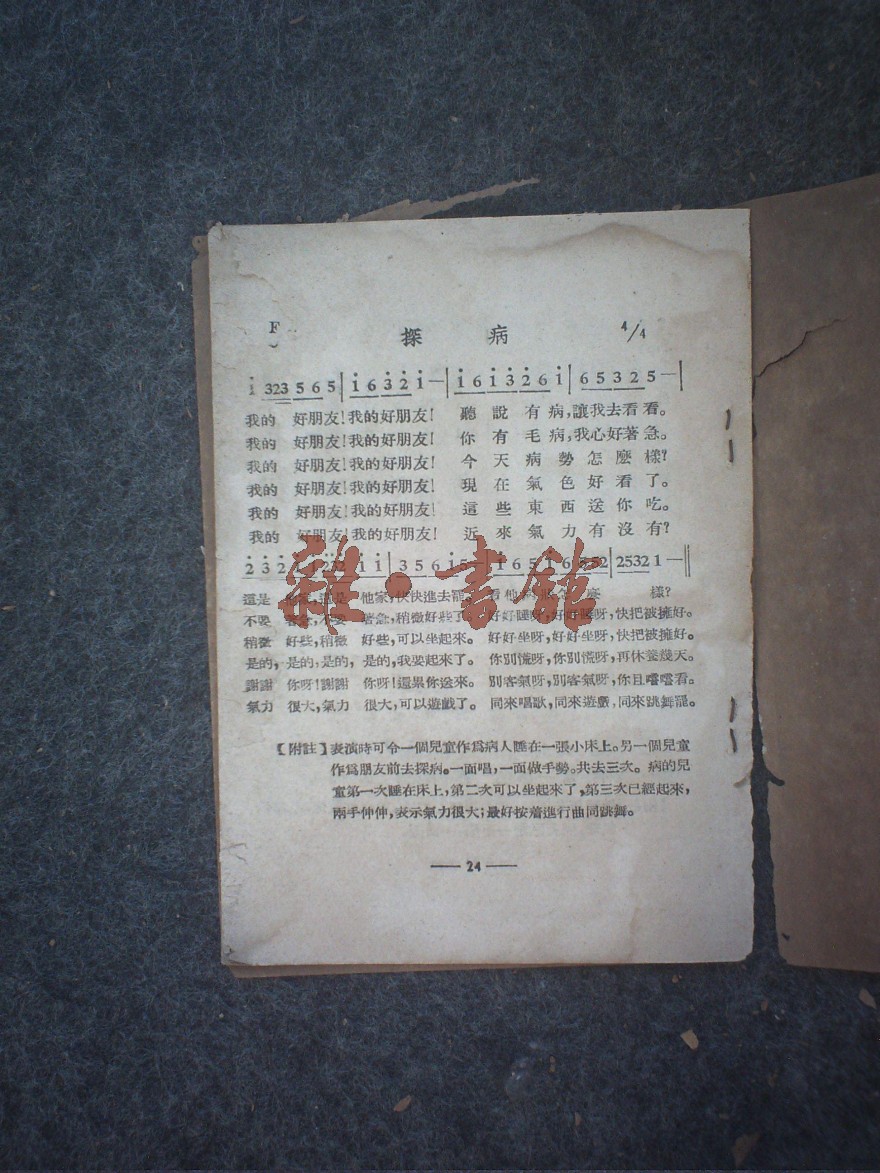 F 探 病 4/4
1 323 5 6 5 | 1 6 3 2 1 — | 1 6 1 3 2 6 1 | 6 5 3 2 5 — |
我的 好朋友!我的好朋友! 聽說有病,讓我去看看。
我的 好朋友!我的好朋友! 你有毛病,我心好著急。
我的 好朋友!我的好朋友! 今天病勢怎麽樣?
我的 好朋友!我的好朋友! 現在氣色好看了。
我的 好朋友!我的好朋友! 這些東西送你吃。
我的 好朋友!我的好朋友! 近來氣力有沒有?
2 3 2 1 1 | 3 5 6 1 | 1 6 5 1 6 | 2532 1 — ||
這是 他家,這是 他家,快快進去罷。看他 樣?
不要 著急,不要 著急,稍微好些了。好好睡呀,好好睡呀,快把被擁好。
稍微 好些,稍微 好些,可以坐起來。好好坐呀,好好坐呀,快把被擁好。
是的,是的,是的,是的,我要起來了。你別慌呀,你別慌呀,再休養幾天。
謝謝 你呀!謝謝 你呀!還累你送來。別客氣呀,別客氣呀,你且嚐嚐看。
氣力 很大,氣力 很大,可以遊戲了。同來唱歌,同來遊戲,同來跳舞罷。
【附註】表演時可令一個兒童作爲病人睡在一張小床上。另一個兒童
作爲朋友前去探病。一面唱,一面做手勢。共去三次。病的兒
童第一次睡在床上,第二次可以坐起來了,第三次已經起來,
兩手伸伸,表示氣力很大;最好按着進行曲同跳舞。
— 24 —
雜·書館